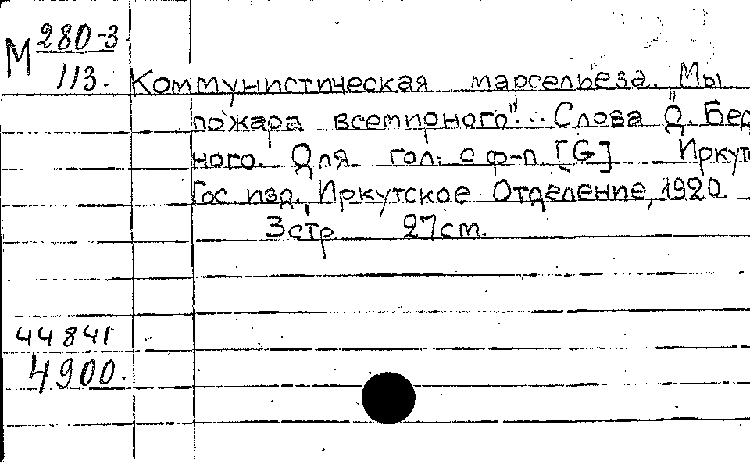 М 280-3
113. Коммунистическая марсельеза. Мы
пожара всемирного"... Слова Д. Бед
ного. Для гол. с ф-п. [G] Иркут
Гос. изд., Иркутское Отделение, 1920.
3стр 27см.
44841
4900.